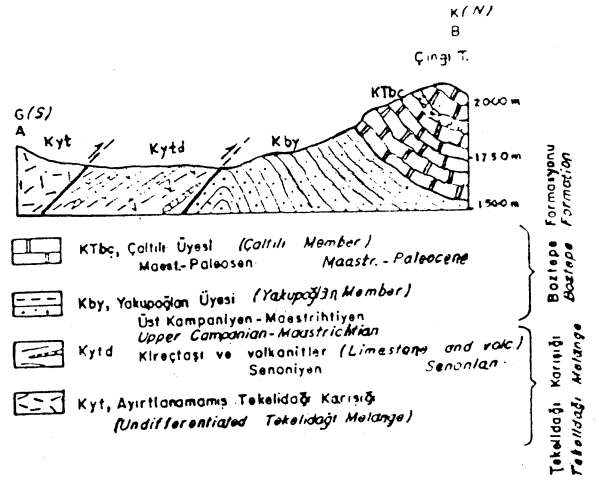 K (N)
B
Çıngı T.
G(S)
A
Kyt
Kytd
Kby
KTbç
2000 m
1750 m
1500 m
KTbç, Çaltılı Üyesi (Çaltılı Member)
Maest.-Paleosen Maastr.-Paleocene
Kby, Yakupoğlan Üyesi (Yakupoğlan Member)
Üst Kampaniyen-Maestrihtiyen
Upper Campanian-Maastrichtian
Kytd Kireçtaşı ve volkanitler (Limestone and volc.)
Senoniyen Senonian
Kyt, Ayırtlanamamış Tekelidağı Karışığı
(Undifferentiated Tekelidağı Melange)
Boztepe Formasyonu
Boztepe Formation
Tekelidağı Karışığı
Tekelidağı Melange